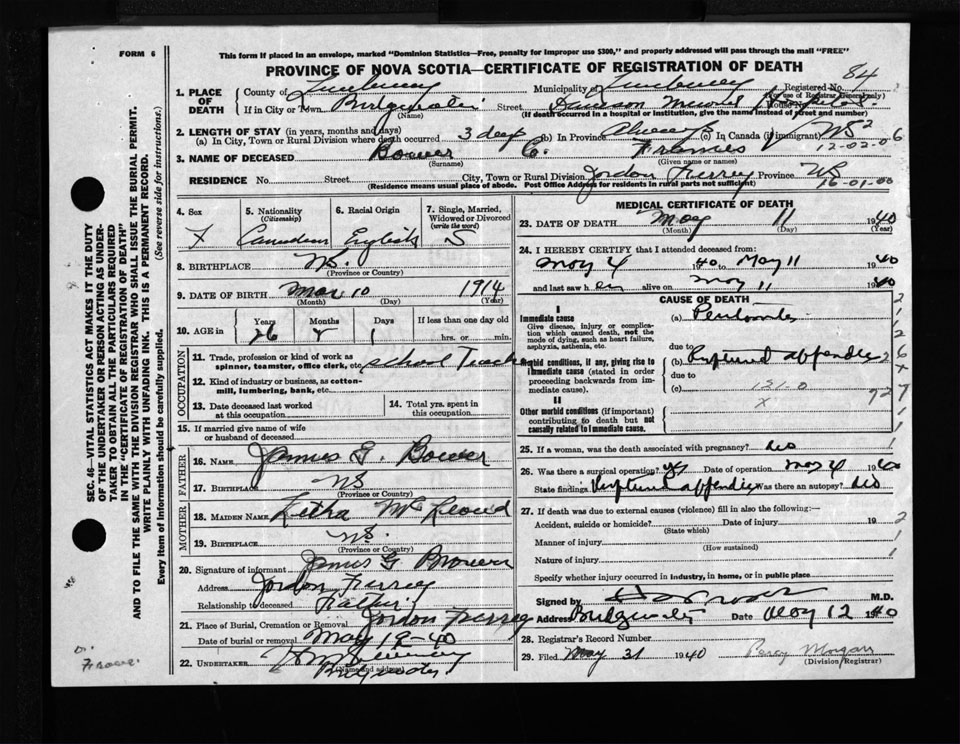 FORM 6
This form if placed in an envelope, marked "Dominion Statistics—Free, penalty for improper use $300," and properly addressed will pass through the mail "FREE"
PROVINCE OF NOVA SCOTIA—CERTIFICATE OF REGISTRATION OF DEATH
84
1. PLACE OF DEATH County of Lunenburg Municipality of Lunenburg Registered No.
(For use of Registrar General only)
If in City or Town Bridgewater Street Dawson Memorial Hospital House No.
(Name) (If death occurred in a hospital or institution, give the name instead of street and number)
2. LENGTH OF STAY (in years, months and days)
(a) In City, Town or Rural Division where death occurred 3 days (b) In Province Always (c) In Canada (if immigrant) NS 2 6
12-02-06
3. NAME OF DECEASED Bower C. Frances
(Surname) (Given name or names)
RESIDENCE No. Street City, Town or Rural Division Jordon Ferry Province NS
(Residence means usual place of abode. Post Office Address for residents in rural parts not sufficient)
16-01-00
4. Sex 5. Nationality (Citizenship) 6. Racial Origin 7. Single, Married, Widowed or Divorced (write the word)
F Canadian English S
8. BIRTHPLACE NS.
(Province or Country)
9. DATE OF BIRTH Mar 10 1914
(Month) (Day) (Year)
10. AGE in Years Months Days If less than one day old
26 2 1 hrs. or min.
OCCUPATION
11. Trade, profession or kind of work as spinner, teamster, office clerk, etc. School Teacher
12. Kind of industry or business, as cotton-mill, lumbering, bank, etc.
13. Date deceased last worked at this occupation
14. Total yrs. spent in this occupation
15. If married give name of wife or husband of deceased
FATHER
16. NAME James G. Bower
17. BIRTHPLACE NS
(Province or Country)
MOTHER
18. MAIDEN NAME Letha McLeod
19. BIRTHPLACE NS.
(Province or Country)
20. Signature of informant James G Bower
Address Jordon Ferry
Relationship to deceased Father
21. Place of Burial, Cremation or Removal Jordon Ferry
Date of burial or removal May 19-40
22. UNDERTAKER
(Name and address)
Bridgewater
MEDICAL CERTIFICATE OF DEATH
23. DATE OF DEATH May 11 1940
(Month) (Day) (Year)
24. I HEREBY CERTIFY that I attended deceased from:
May 4 1940 to May 11 1940
and last saw her alive on May 11 1940
CAUSE OF DEATH
I
Immediate cause (a) Peritonitis
Give disease, injury or complication which caused death, not the mode of dying, such as heart failure, asphyxia, asthenia, etc.
due to
Morbid conditions, if any, giving rise to immediate cause (stated in order proceeding backwards from immediate cause). (b) Ruptured appendix
due to
(c) 121-0
X
727
II
Other morbid conditions (if important) contributing to death but not causally related to immediate cause.
25. If a woman, was the death associated with pregnancy? No
26. Was there a surgical operation? Yes Date of operation May 4 1940
State findings Ruptured appendix Was there an autopsy? No
27. If death was due to external causes (violence) fill in also the following:—
Accident, suicide or homicide? Date of injury 19
(State which)
Manner of injury
(How sustained)
Nature of injury
Specify whether injury occurred in industry, in home, or in public place
Signed by M.D.
Address Bridgewater Date May 12 1940
28. Registrar's Record Number
29. Filed May 31 1940 Percy Morgan
(Division Registrar)
SEC. 46—VITAL STATISTICS ACT MAKES IT THE DUTY
OF THE UNDERTAKER OR PERSON ACTING AS UNDER-
TAKER TO OBTAIN ALL THE PARTICULARS REQUIRED
IN THE "CERTIFICATE OF REGISTRATION OF DEATH"
AND TO FILE THE SAME WITH THE DIVISION REGISTRAR WHO SHALL ISSUE THE BURIAL PERMIT.
WRITE PLAINLY WITH UNFADING INK. THIS IS A PERMANENT RECORD.
Every item of Information should be carefully supplied. (See reverse side for instructions.)